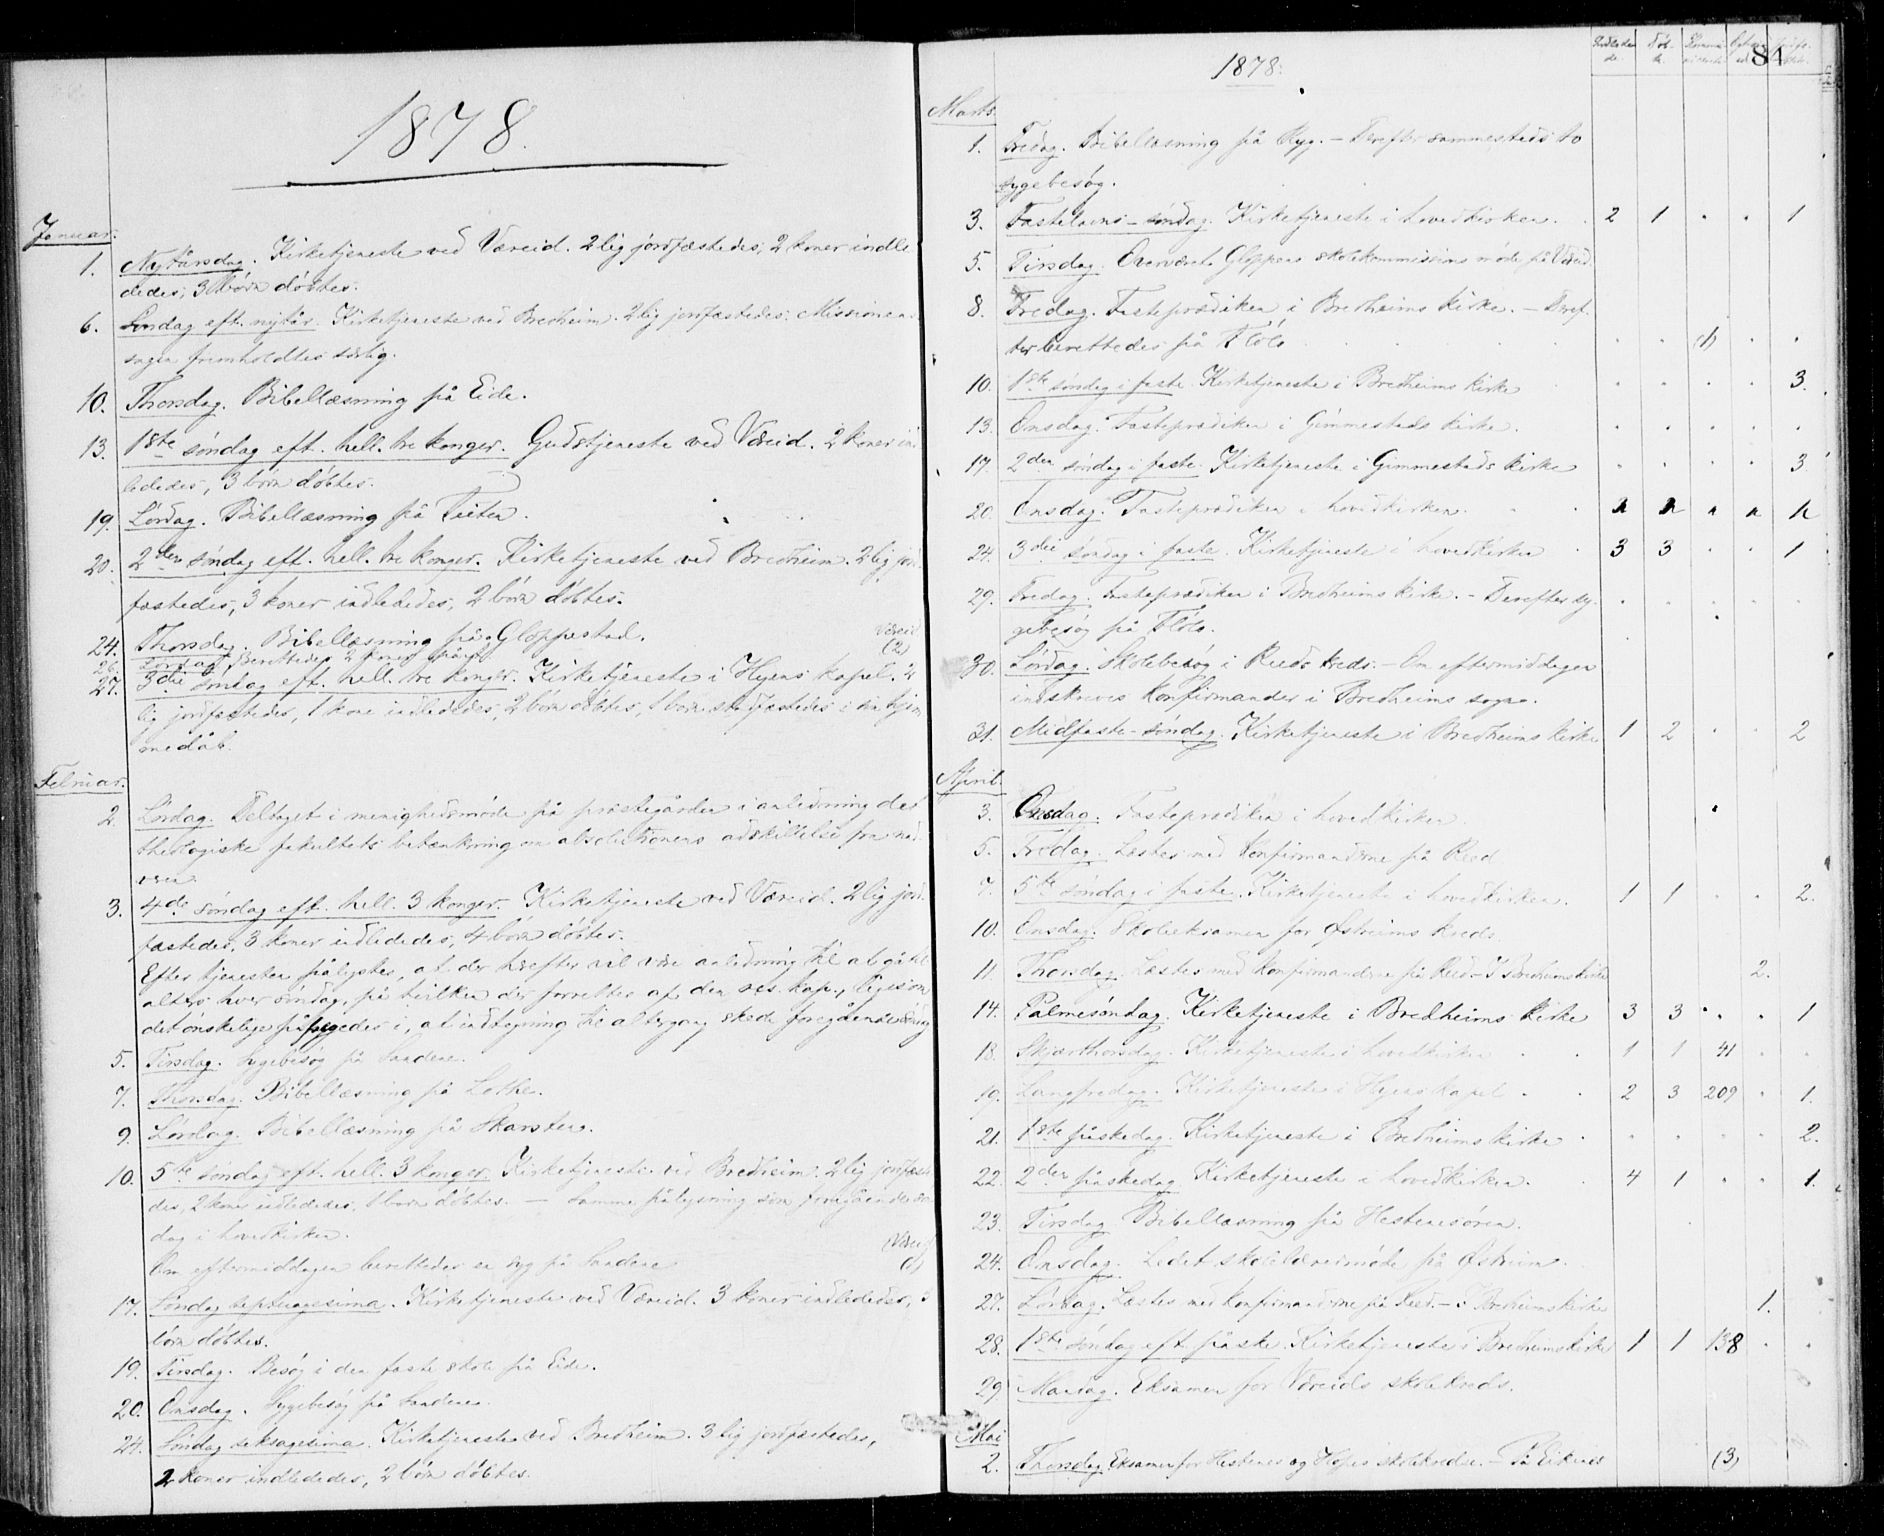 1878.
Januar.
1. Nytårsdag. Kirketjeneste ved Væreid. 2 lig jordfæstedes, 2 koner indle
dedes, 3 børn døbtes.
6. Søndag eft. nytår. Kirketjeneste ved Bredheim. 2 lig jordfæstedes. Missionen
sagen fremholdtes særlig.
10. Thorsdag. Bibellæsning på Eide.
13. 1ste søndag eft. hell. tre konger. Gudstjeneste ved Væreid. 2 koner in
lededes, 3 børn døbtes.
19. Lørdag. Bibellæsning på
20. 2den søndag eft. hell. tre konger. Kirketjeneste ved Bredheim. 2 lig jor
fæstedes, 3 koner indlededes, 2 børn døbtes.
24. Thorsdag. Bibellæsning på Gloppestad. Væreid
26. Lørdag. Berettedes 2 (2)
27. 3die søndag eft. hell. tre konger. Kirketjeneste i Hyens kapel. 2
lig jordfæstedes, 1 kone indlededes, 2 børn døbtes, 1 barn stadfæstedes i sin hjem
medåb.
Februar.
2. Lørdag. Deltaget i menighedsmøde på præstegården i anledning det
theologiske fakultets betænkning om absolutionens adskillelse fra nad
veren.
3. 4de søndag eft. hell. 3 konger. Kirketjeneste ved Væreid. 2 lig jord
fæstedes, 3 koner indlededes, 4 børn døbtes.
Efter tjenesten pålystes, at der herefter vil være anledning til at gå til
alters hver søndag, på hvilken der forrettes af den res. kap., ligesom
det ønskelige i, at indtegning til altergang skede foregående
5. Tirsdag. Sygebesøg på Sandene.
7. Thorsdag. Bibellæsning på Lothe.
9. Lørdag. Bibellæsning på Skarsten.
10. 5te søndag eft. hell. 3 konger. Kirketjeneste ved Bredheim. 2 lig jordfæste
des, 2 koner indlededes, 1 barn døbtes. — Samme pålysning som foregående søn
dag i hovedkirken.
Om eftermiddagen berettedes en syg på Sandene (1)
17. Søndag septuagesima. Kirketjeneste ved Væreid. 3 koner indlededes, 3
børn døbtes.
19. Tirsdag. Besøg i den faste skole på Eide.
20. Onsdag. Sygebesøg på Sandene.
24. Søndag seksagesima. Kirketjeneste ved Bredheim. 3 lig jordfæstedes,
2 koner indlededes, 2 børn døbtes.
1878. 84
Marts.
1. Fredag. Bibellæsning på Ryg. — Derefter sammesteds to
sygebesøg.
3. Fastelavns-søndag. Kirketjeneste i hovedkirken. 2 1 . . 1
5. Tirsdag. Overværet Gloppens skolekommissions møde på Væreid
8. Fredag. Fasteprædiken i Bredheims kirke. — Deref-
ter berettedes på Flølo . . (1) . .
10. 1ste søndag i faste. Kirketjeneste i Bredheims kirke . . . . 3.
13. Onsdag. Fasteprædiken i Gimmestads kirke. . . . . .
17. 2den søndag i faste. Kirketjeneste i Gimmestads kirke . . . . 3.
20. Onsdag. Fasteprædiken i hovedkirken.
24. 3die søndag i faste. Kirketjeneste i hovedkirken 3 3 . . 1
29. Fredag. Fasteprædiken i Bredheims kirke. — Derefter sy-
gebesøg på Flølo.
30. Lørdag. Skolebesøg i Reeds kreds. — Om eftermiddagen
indskreves konfirmander i Bredheims sogn.
31. Midfaste-søndag. Kirketjeneste i Bredheims kirke 1 2 . . 2
April.
3. Onsdag. Fasteprædiken i hovedkirken.
5. Fredag. Læstes med konfirmanderne på Reed.
7. 5te søndag i faste. Kirketjeneste i hovedkirken. 1 1 . . 2.
10. Onsdag. Skoleeksamen for Østreims kreds.
11. Thorsdag. Læstes med konfirmanderne på Reed — I Bredheims kirke 2.
14. Palmesøndag. Kirketjeneste i Bredheims kirke 3 3 . . 1
18. Skjærthorsdag. Kirketjeneste i hovedkirken 1 1 41 . .
19. Langfredag. Kirketjeneste i Hyens kapel 2 3 209 . 1.
21. 1ste påskedag. Kirketjeneste i Bredheims kirke . . . . 2.
22. 2den påskedag. Kirketjeneste i hovedkirken. 4 1 . . 1.
23. Tirsdag. Bibellæsning på Hestenesøren.
24. Onsdag. Ledet skolelærermøde på Østreim.
27. Lørdag. Læstes med konfirmanderne på Reed. — I Bredheims kirke 1.
28. 1ste søndag eft påske. Kirketjeneste i Bredheims kirke 1 1 138 . .
29. Mandag. Eksamen for Væreids skolekreds.
Mai
2. Thorsdag. Eksamen for Hestenes og Hopes skolekredse. — På Eikenes (3)